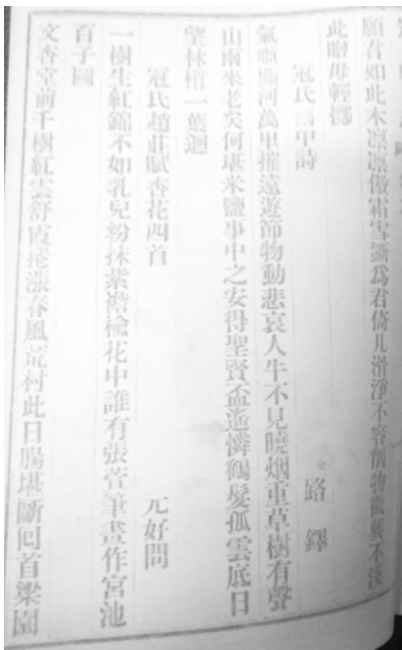 願君如此木凛凛傲霜雪斵爲君倚几滑淨不容削物微興不淺
此贈毋輕擲
冠氏
中詩
路鐸
氣
河萬里摧遠遊節物動悲哀人牛不見曉烟重草樹有聲
山雨來老矣何堪米鹽事中之安得聖賢盃遙憐鶴髮孤雲底日
望林梢一葉迴
冠氏趙莊賦杏花四首
元好問
一樹生紅錦不如乳兒粉抹紫襜褕花中誰有張萱筆畫作宮池
百子圖
文杏堂前千樹紅雲舒霞捲漲春風荒村此日腸堪斷囘首梁園